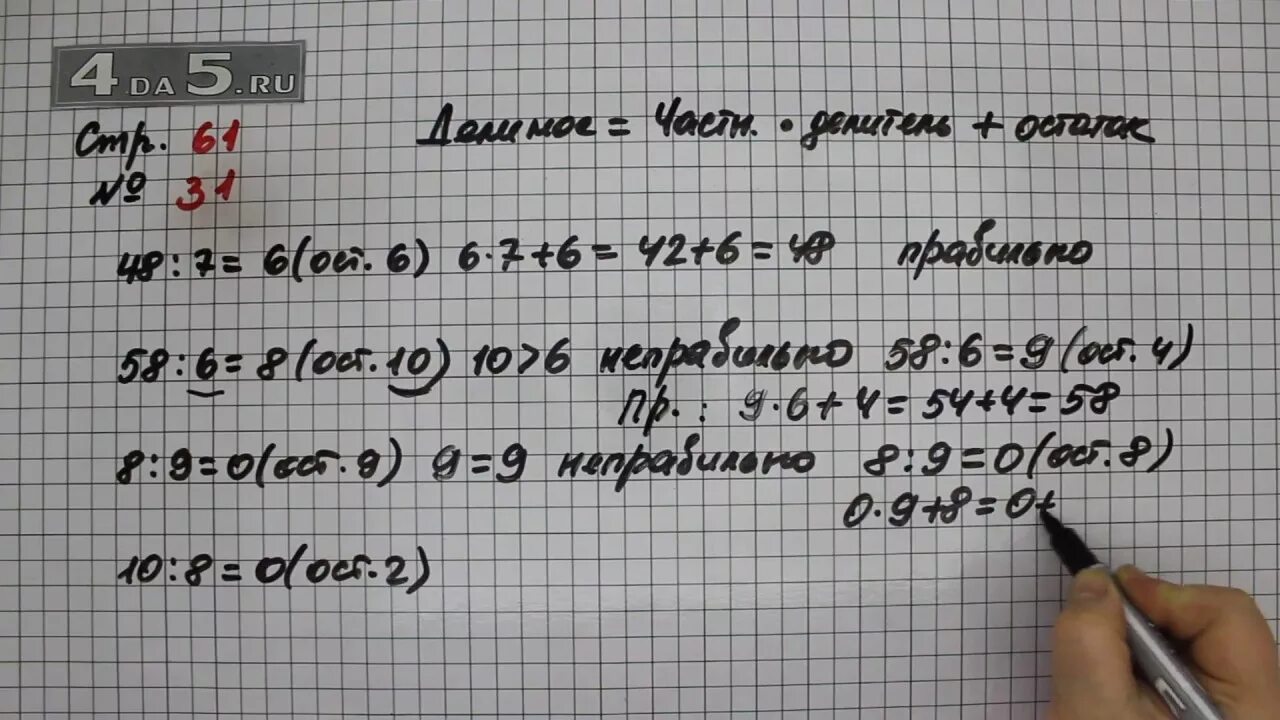 4 DA 5.RU
Стр. 61
№ 31
Делимое = Частн. · делитель + остаток
48 : 7 = 6 (ост. 6) 6·7+6 = 42+6 = 48 правильно
58 : 6 = 8 (ост. 10) 10>6 неправильно 58:6=9(ост. 4)
Пр. : 9·6+4=54+4=58
8:9=0(ост. 9) 9=9 неправильно 8:9=0(ост. 8)
0·9+8=0+
10:8=0(ост. 2)